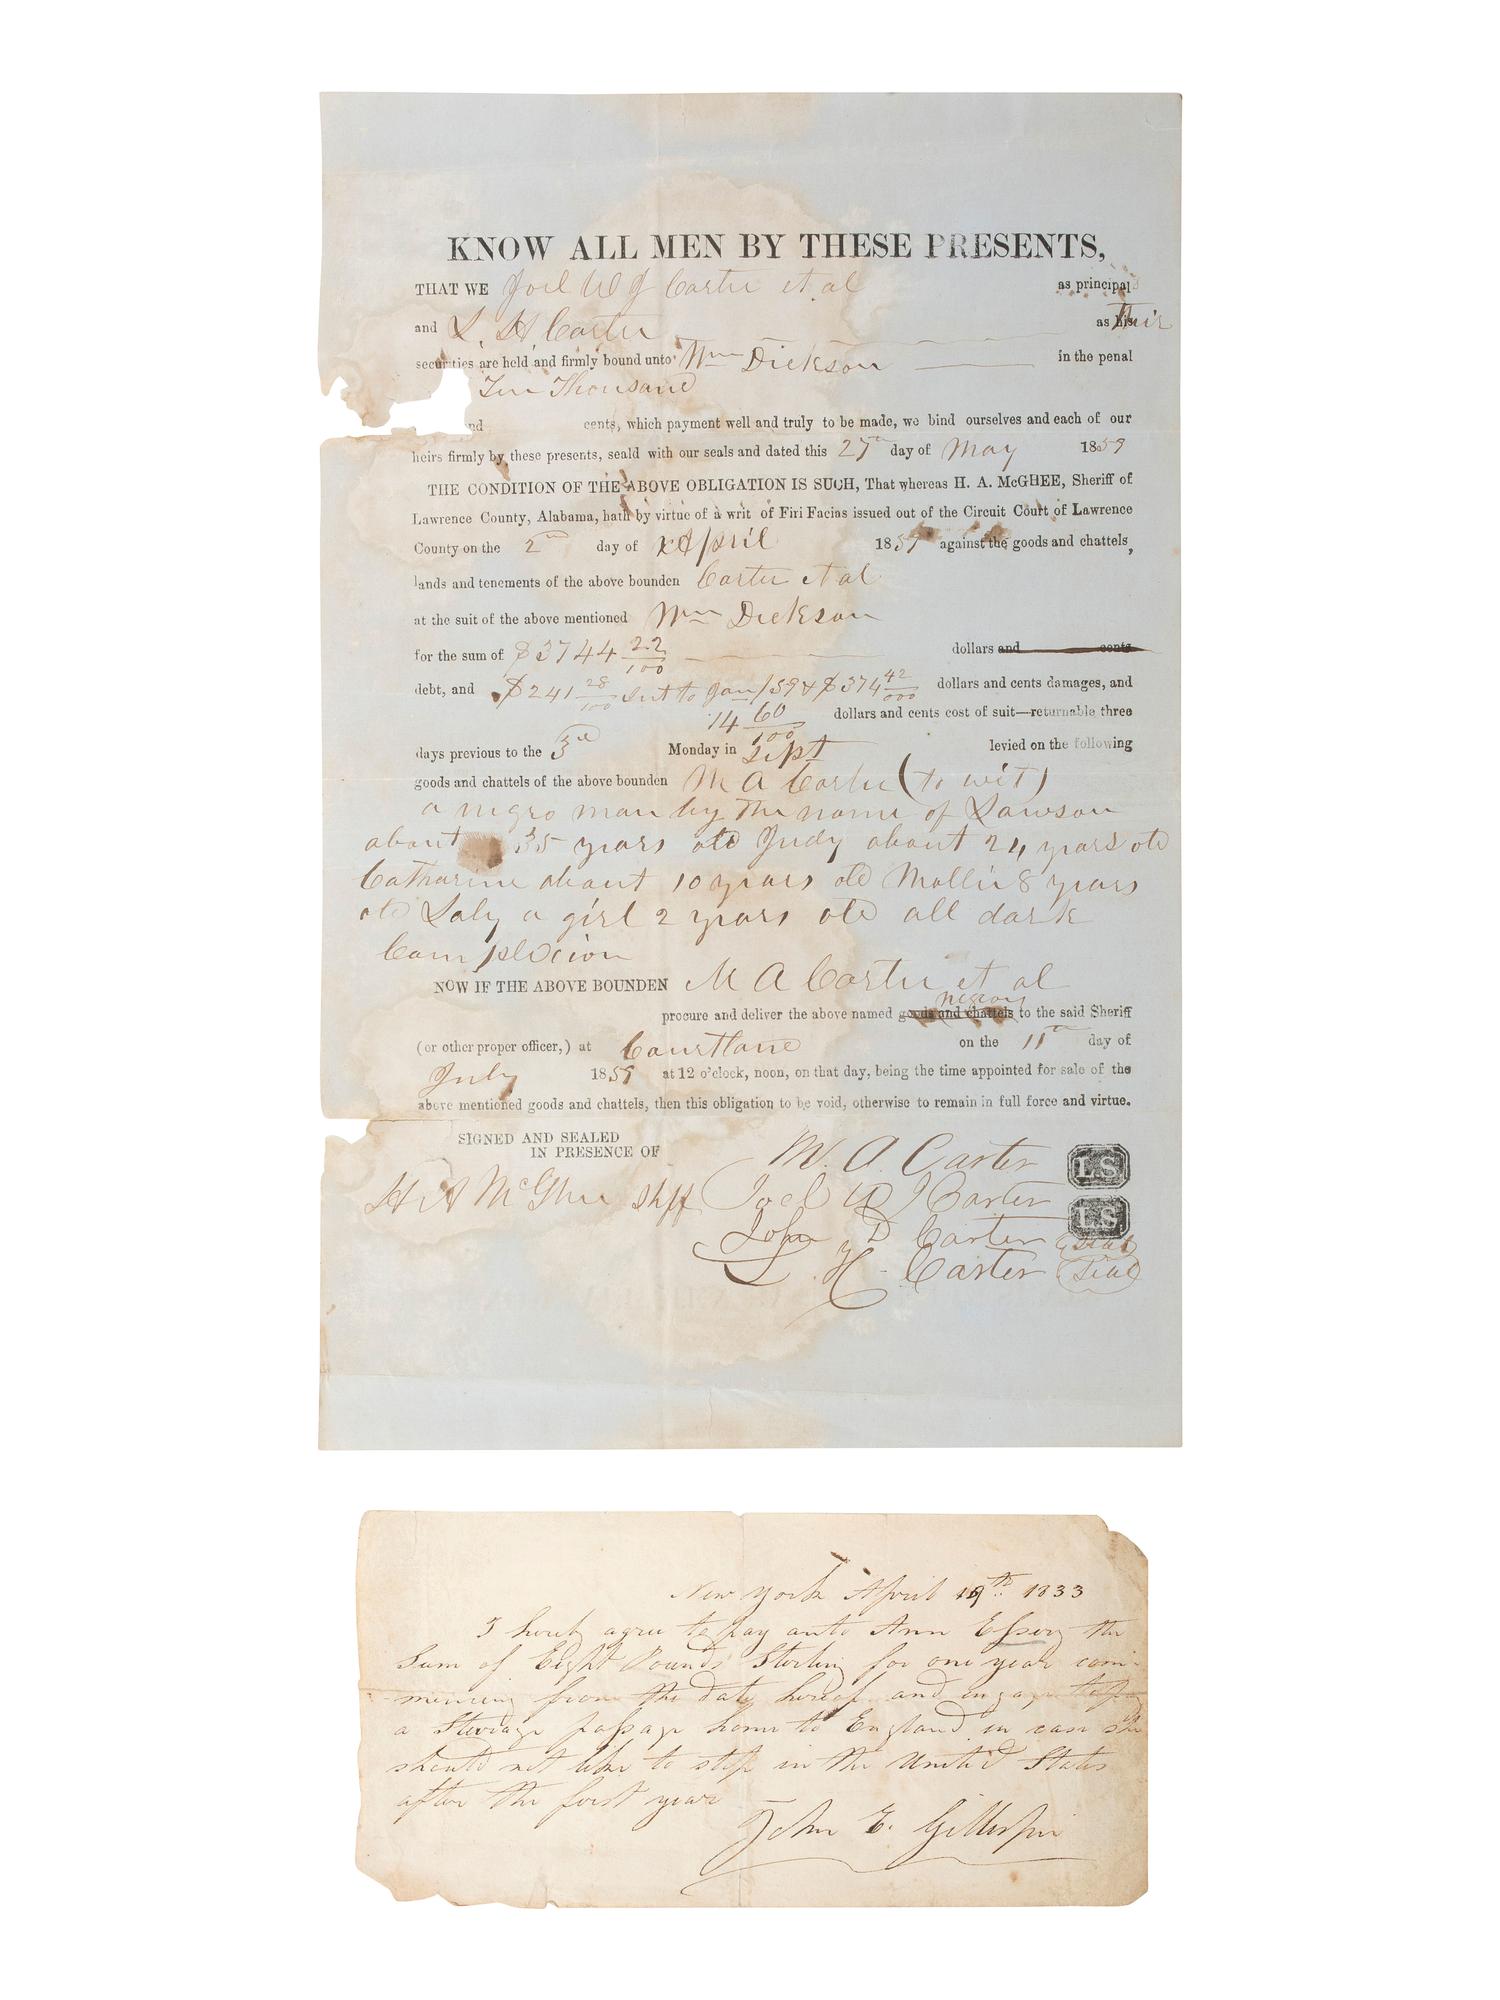 KNOW ALL MEN BY THESE PRESENTS,
THAT WE Joel W J Carter et al as principals
and L. H. Carter as his their
securities are held and firmly bound unto Wm Dickson in the penal
Ten Thousand
nd cents, which payment well and truly to be made, we bind ourselves and each of our
heirs firmly by these presents, seald with our seals and dated this 27th day of May 1859
THE CONDITION OF THE ABOVE OBLIGATION IS SUCH, That whereas H. A. McGHEE, Sheriff of
Lawrence County, Alabama, hath by virtue of a writ of Firi Facias issued out of the Circuit Court of Lawrence
County on the 2nd day of April 1859 against the goods and chattels,
lands and tenements of the above bounden Carter et al
at the suit of the above mentioned Wm Dickson
for the sum of $3744 22/100 dollars and cents
debt, and $241 28/100 int to Jan/59 & $374 42/000 dollars and cents damages, and
14 60/100 dollars and cents cost of suit—returnable three
days previous to the 3rd Monday in Sept levied on the following
goods and chattels of the above bounden M A Carter (to wit)
a negro man by the name of Lawson
about 35 years old Judy about 24 years old
Catharine about 10 years old Mollie 8 years
old Laly a girl 2 years old all dark
Complexion
NOW IF THE ABOVE BOUNDEN M A Carter et al
negroes
procure and deliver the above named goods and chattels to the said Sheriff
(or other proper officer,) at Courtland on the 11th day of
July 1859 at 12 o'clock, noon, on that day, being the time appointed for sale of the
above mentioned goods and chattels, then this obligation to be void, otherwise to remain in full force and virtue.
SIGNED AND SEALED
IN PRESENCE OF
M. A. Carter LS
H A McGhee Shff Joel W J Carter LS
John D Carter Seal
L. H. Carter Seal
New York April 19th 1833
I hereby agree to pay unto Ann Essery the
Sum of Eight Pounds Sterling for one year com-
mencing from the date hereof and engage to pay
a Steerage passage home to England in case she
should not like to stop in the United States
after the first year
John E. Gillespie